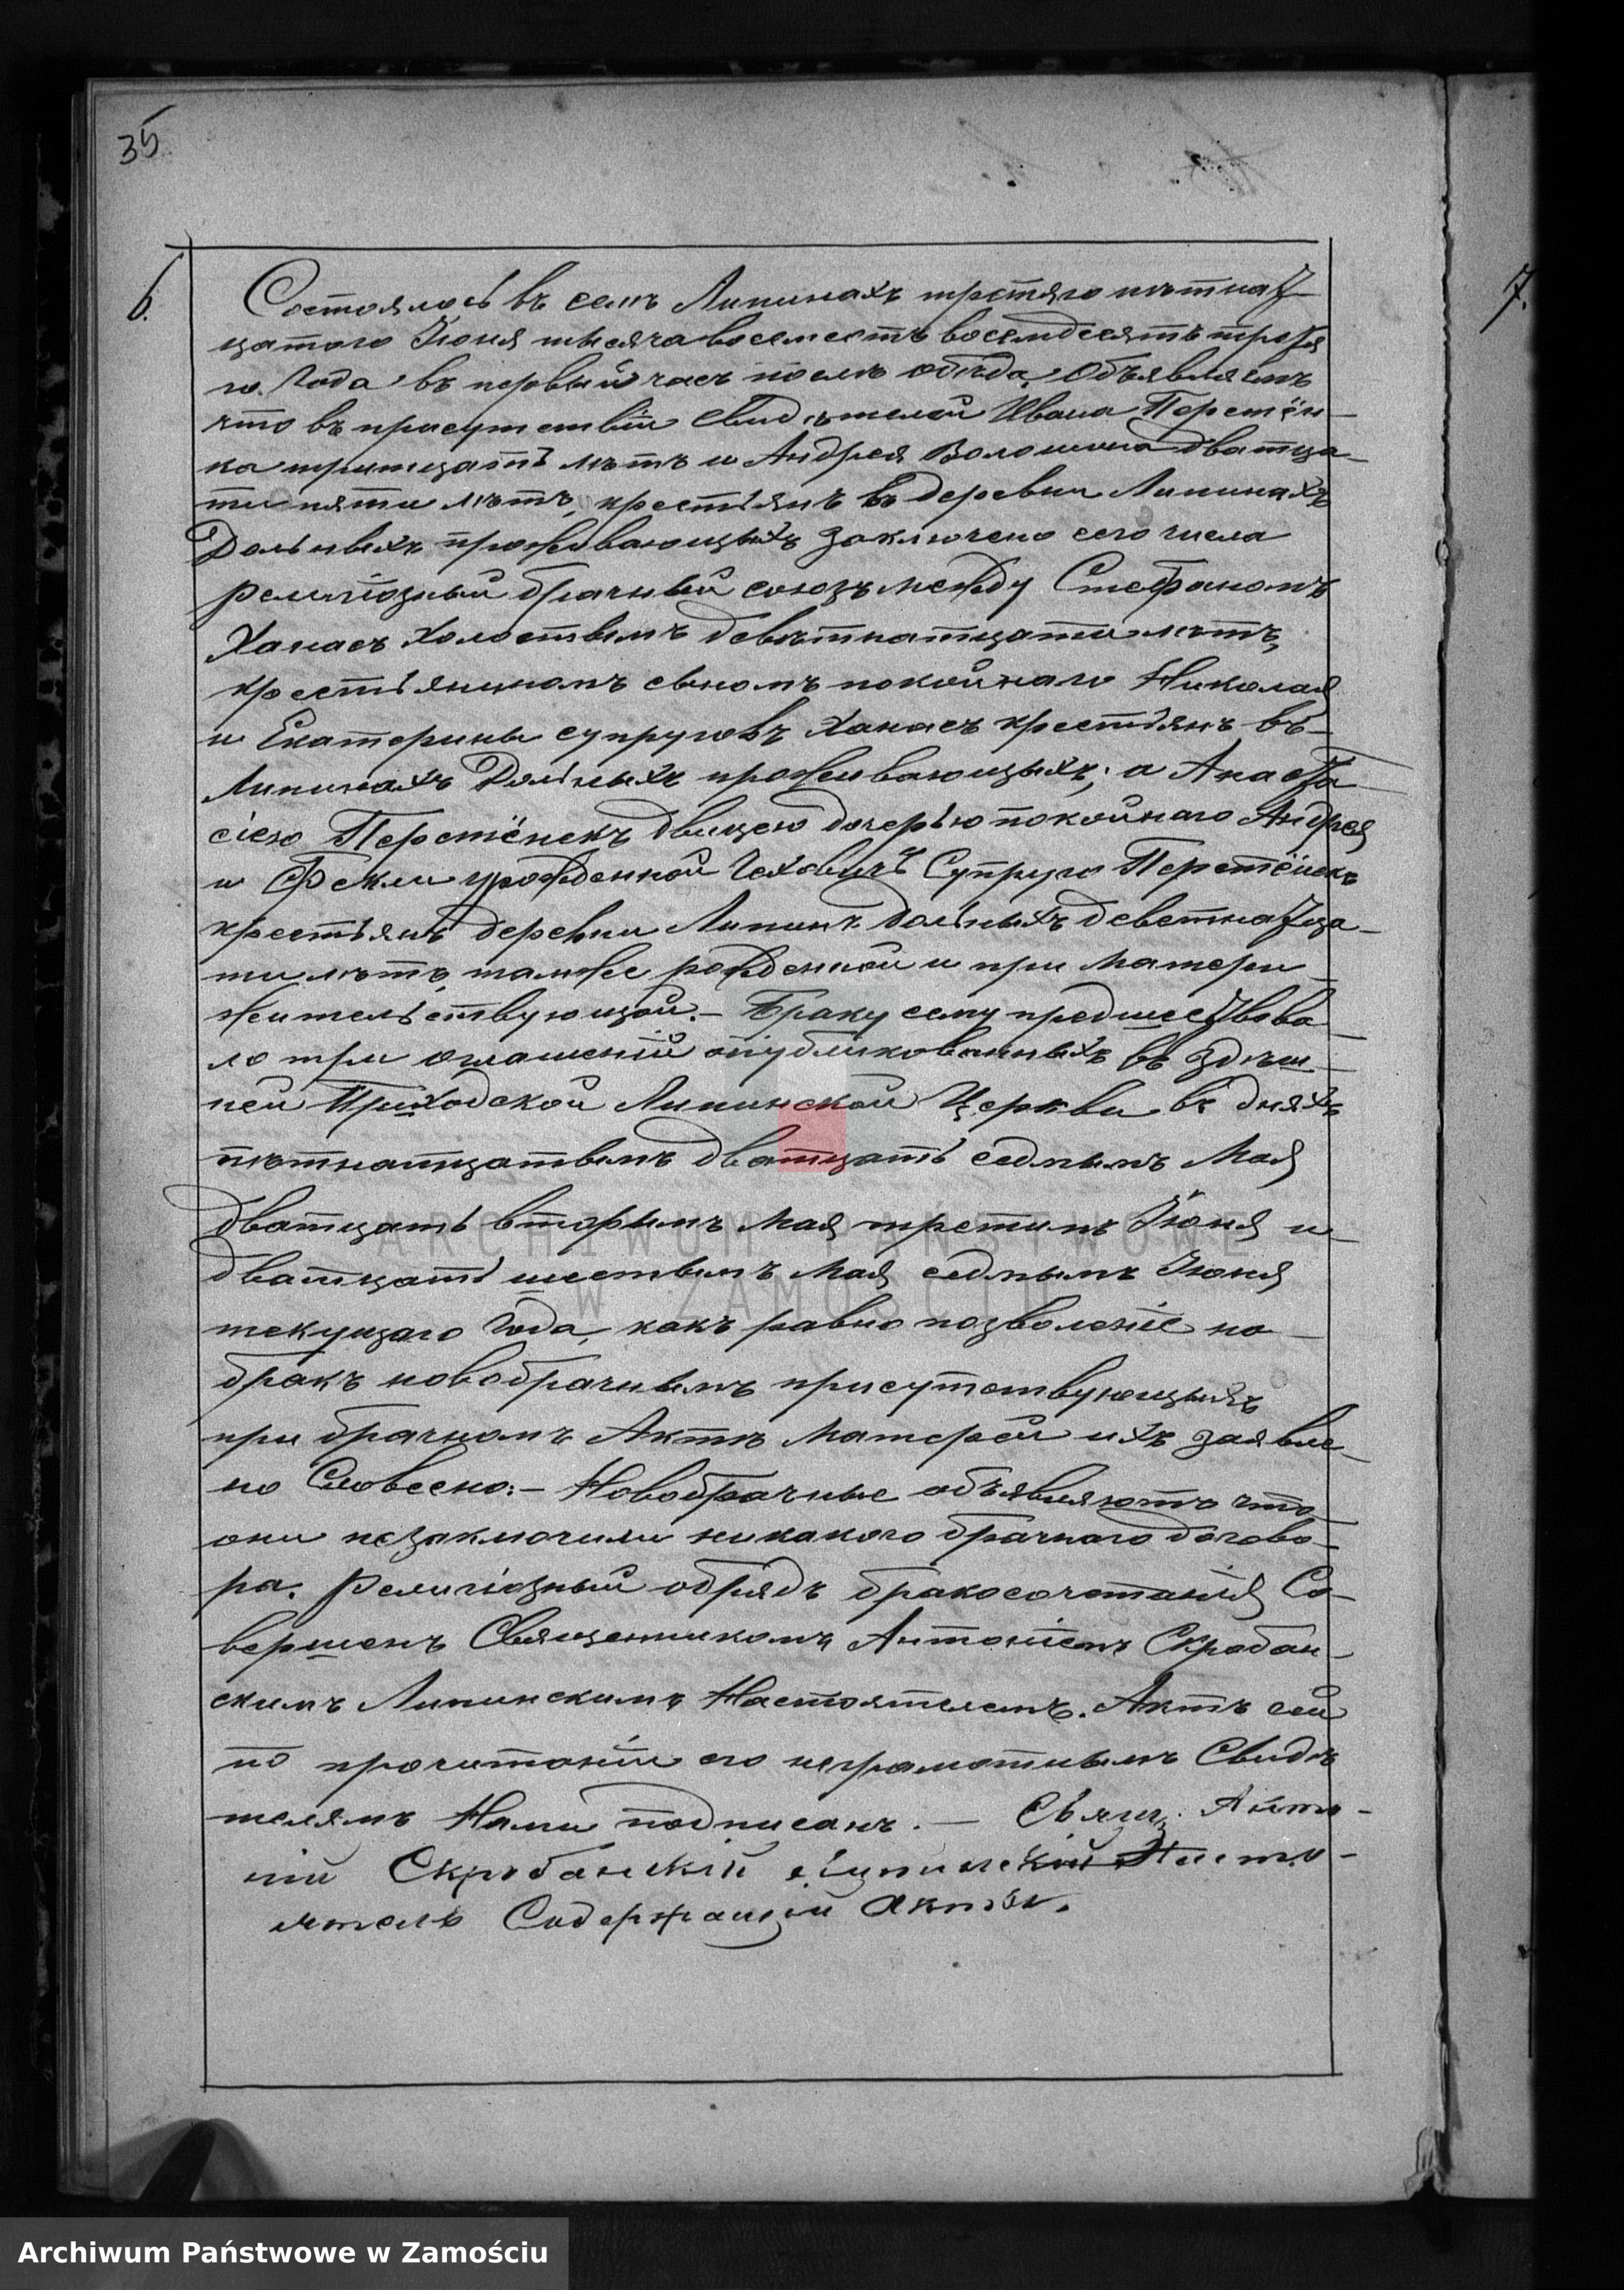 35
6.
7.
Состоялось въ селѣ Липинахъ третяго пятнад-
цатого Іюня тысяча восемсотъ восемдесятъ третя
го Года въ первый часъ послѣ обѣда. Объявляемъ
что въ присутствіи свидѣтелей Ивана Перетён-
ка тритцать лѣтъ и Андрея Волошина дватца-
ти пяти лѣтъ, крестьянъ въ деревни Липинахъ
Дольныхъ проживающыхъ заключено сего числа
религіозный брачный союзъ между Стефаномъ
Ханасъ холостымъ девѣтнатцати лѣтъ,
крестьяниномъ сыномъ покойнаго Николая
и Екатерины супруговъ Ханасъ крестьянъ въ
Липинахъ Дольныхъ проживающыхъ; а Анаста-
сіею Перетёнекъ двицею дочерью покойнаго Андрея
и Феклы урожденной Чеховичъ Супруго Перетёнекъ
крестьянъ деревни Липинъ дольныхъ деветнадца-
ти лѣтъ, тамже рожденной и при матери
жительствующой. – Браку сему предшествова-
ло три оглашеній опубликованныхъ въ здѣш-
ней Приходской Липинской Церкви въ дняхъ
пѣтнатцатымъ дватцать седмымъ Мая
дватцать вторымъ Мая третимъ Іюня и
дватцать шестымъ Мая, седмымъ Іюня
текущаго Года, какъ равно позволеніе на-
бракъ новобрачнымъ присутствующыхъ
при брачномъ Актѣ матерей ихъ заявле-
но Словесно: – Новобрачные объявляютъ что
они незаключили никакого брачного догово-
ра. Религіозный обрядъ бракосочетанія Со-
вершенъ Священникомъ Антоніемъ Скробан-
скимъ Липинскимъ Настоятелемъ. Актъ сей
по прочитаніи его неграмотнымъ Свидѣ
телямъ Нами подписанъ. – Свящ. Анто-
ній Скробанскій Липинскій Насто-
ятель Содержащій Акты.
ARCHIWUM PAŃSTWOWE
W ZAMOŚCIU
Archiwum Państwowe w Zamościu